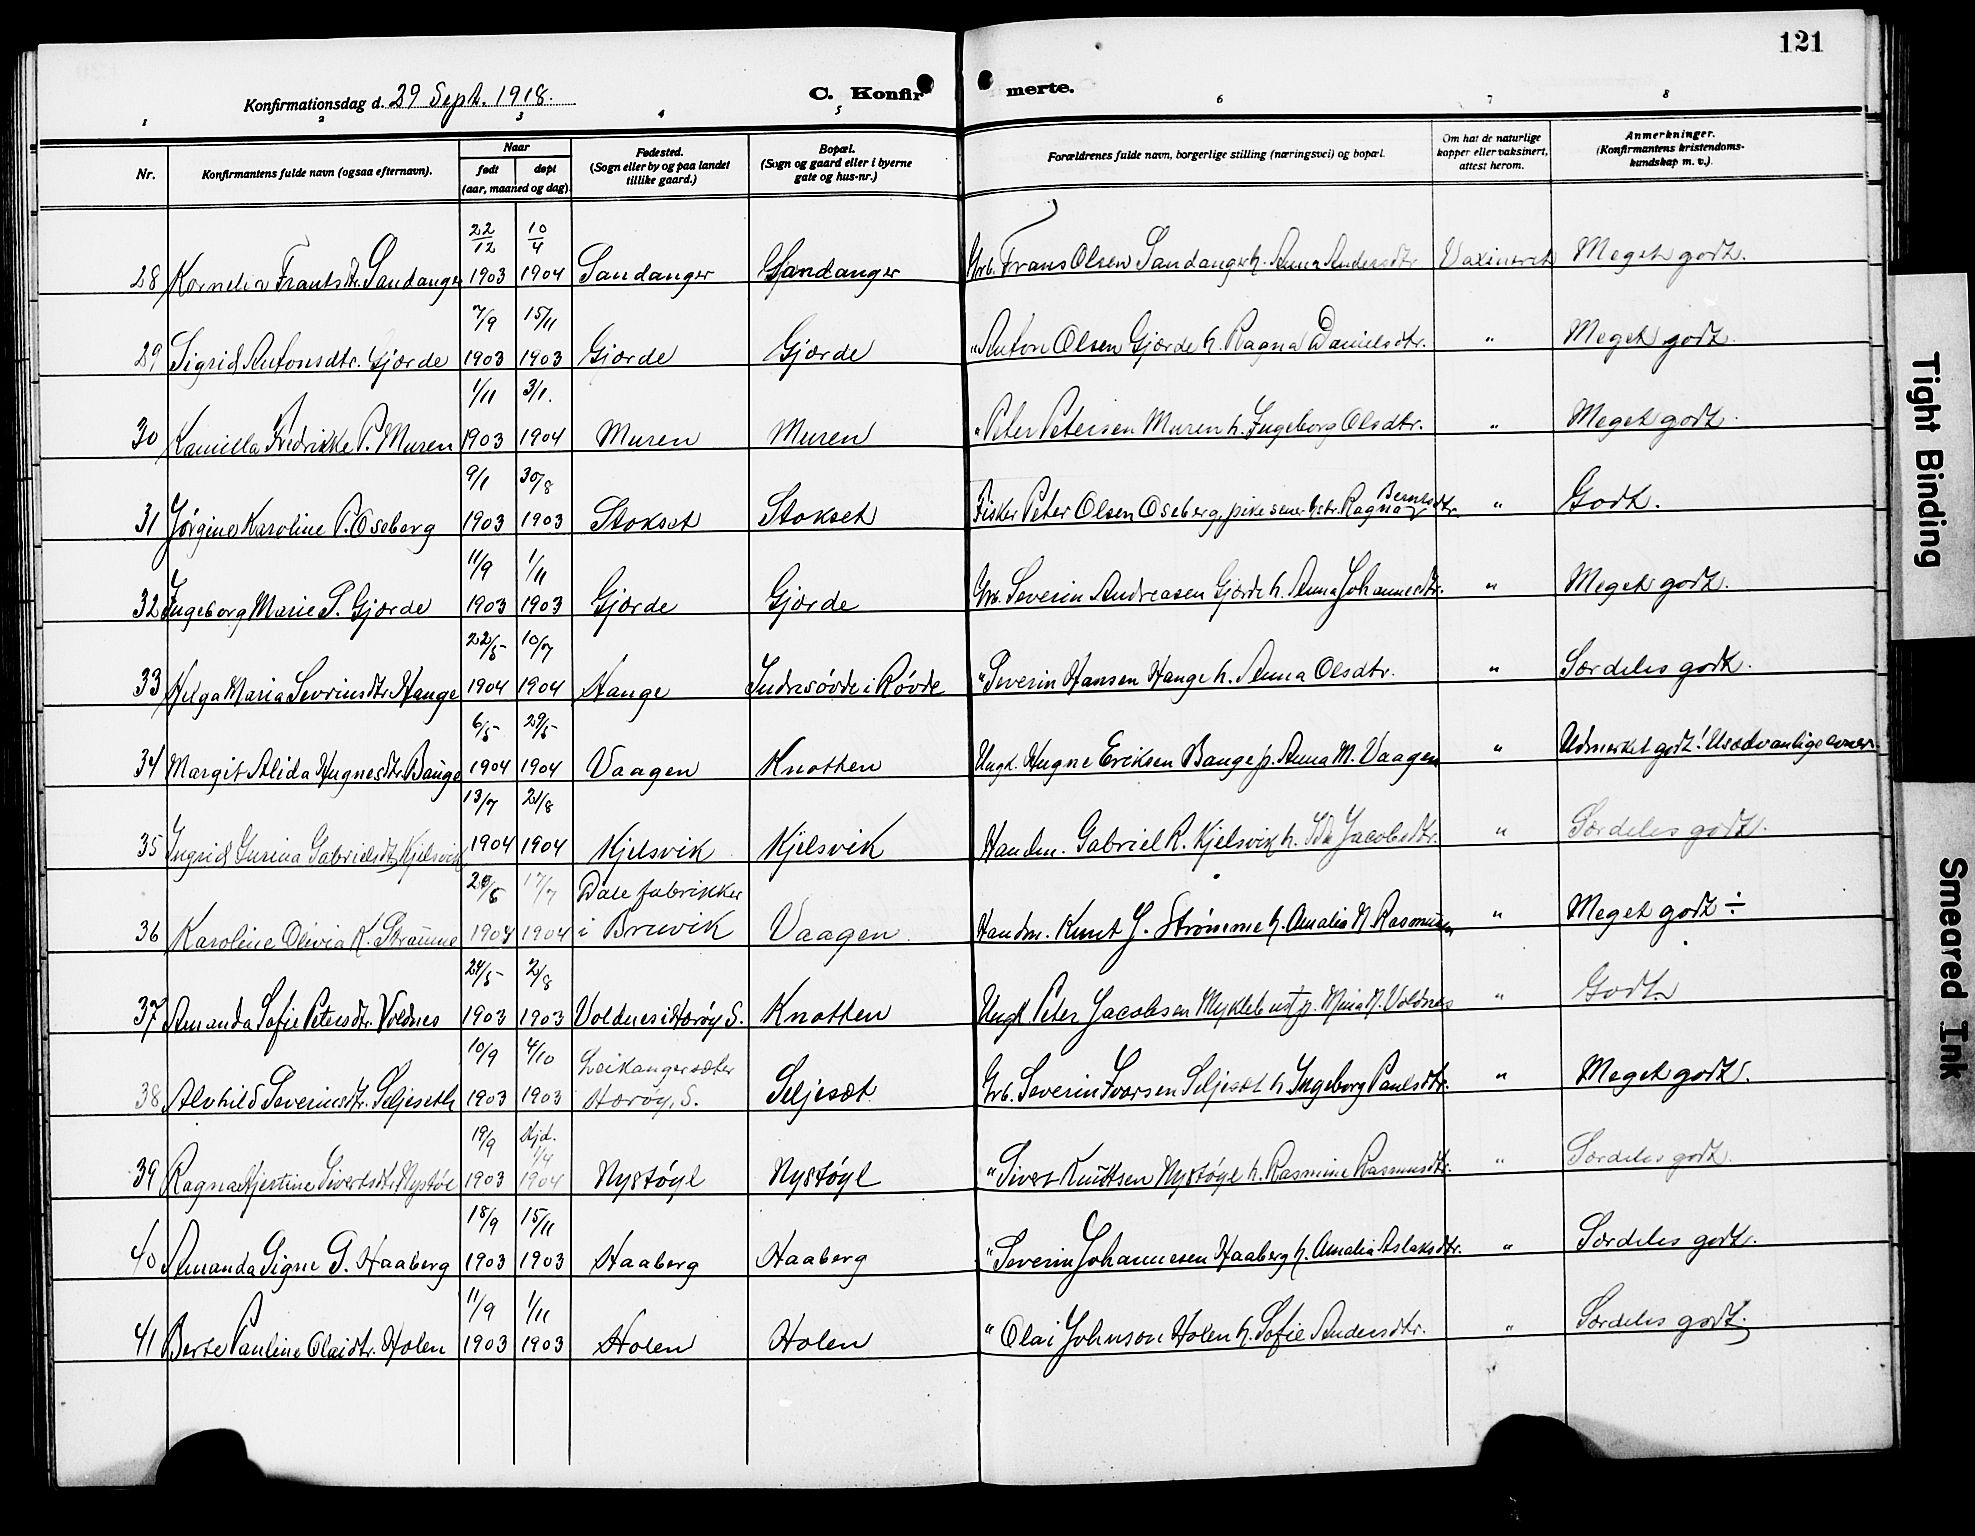 121
Konfirmationsdag d. 29 Sept. 1918.
C. Konfirmerte.
1 2 3 4 5 6 7 8
Nr. Konfirmantens fulde navn (ogsaa efternavn). Naar født døpt (aar, maaned og dag). Fødested. (Sogn eller by og paa landet tillike gaard.) Bopæl. (Sogn og gaard eller i byerne gate og hus-nr.) Forældrenes fulde navn, borgerlige stilling (næringsvei) og bopæl. Om hat de naturlige kopper eller vaksinert, attest herom. Anmerkninger. (Konfirmantens kristendomskundskap m. v.).
28 Kornelia Frantsdtr. Sandanger 22/12 1903 10/4 1904 Sandanger Sandanger Grb. Frans Olsen Sandanger h. Anna Andersdtr Vaxineret Meget godt.
29 Sigrid Antonsdtr. Gjærde 7/9 1903 15/11 1903 Gjærde Gjærde " Anton Olsen Gjærde h. Ragna Danielsdtr. " Meget godt.
30 Kamilla Fredrikke P. Muren 1/11 1903 3/1. 1904 Muren Muren " Peter Petersen Muren h. Ingeborg Olsdtr. " Meget godt.
31 Jørgine Karoline P. Oseberg 9/1 1903 30/8 1903 Stokset Stokset Fisker Peter Olsen Oseberg, pike senere hstr. Ragna Berntsdtr. " Godt.
32 Ingeborg Marie S. Gjærde 11/9 1903 1/11 1903 Gjærde Gjærde Grb. Severin Andreasen Gjærde h. Anna Johannesdtr. " Meget godt.
33 Helga Maria Sevrinsdtr. Hauge 22/5 1904 10/7 1904 Hauge Indresøvde i Røvde " Severin Hansen Hauge h. Anna Olsdtr. " Særdeles godt.
34 Margit Alida Hugnesdtr. Bauge 6/5 1904 29/5 1904 Vaagen Knotten Ungk. Hugne Eriksen Bauge p. Anna M. Vaagen " Udmerket godt! Usædvanlige evner.
35 Ingrid Gurina Gabrielsdtr. Kjelsvik 13/7 1904 21/8 1904 Kjelsvik Kjelsvik Handm. Gabriel R. Kjelsvik h. Ida Jacobsdtr. " Særdeles godt.
36 Karoline Olivia K. Strømme 1904 17/7 1904 Dale fabrikker i Bruvik Vaagen Handm. Knut J. Strømme h. Amalia N Rasmussen " Meget godt ÷
37 Amanda Sofie Petersdtr. Voldnes 24/5 1903 2/8 1903 Voldnes i Herøy S. Knotten Ungk. Peter Jacobsen Myklebust p. Mina N. Voldnes " Godt.
38 Alvhild Severinsdtr. Seljeseth 10/9 1903 4/10 1903 Leikangersæter Herøy, S. Seljesæt Grb. Severin Iversen Seljesæt h. Ingeborg Paulsdtr. " Meget godt.
39 Ragna Kjestine Sivertsdtr. Nystøl 19/9 1903 Hjd. 1/4 1904 Nystøyl Nystøyl " Siver Knudtsen Nystøyl h. Rasmine Rasmusdtr. " Særdeles godt.
40 Amanda Signe S. Haaberg 18/9 1903 15/11 1903 Haaberg Haaberg " Severin Johannesen Haaberg h. Amalia Aslaksdtr. " Særdeles godt.
41 Berte Pauline Olaidtr. Holen 11/9 1903 1/11 1903 Holen Holen " Olai Johnson Holen h. Sofie Andersdtr. " Særdeles godt.
Tight Binding
Smeared Ink